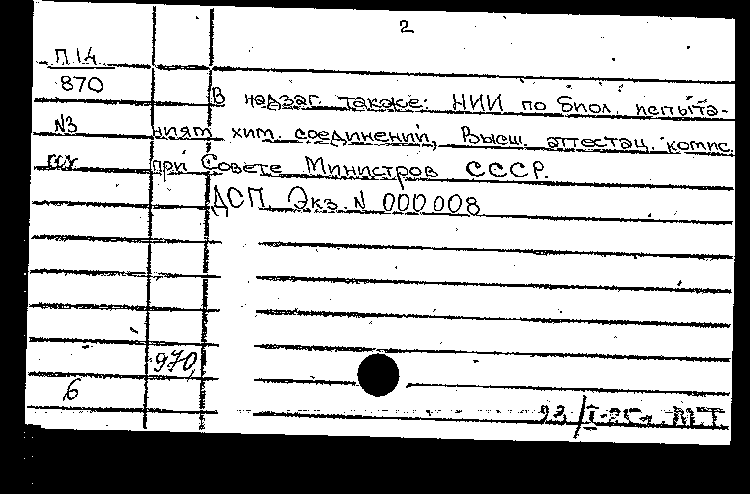 2
П14
870
В надзаг. также: НИИ по биол. испыта-
N3
ниям хим. соединений, Высш. аттестац. комис.
при Совете Министров СССР.
ДСП. Экз. N 000008
970,
6
23/I-85г. М.Т.